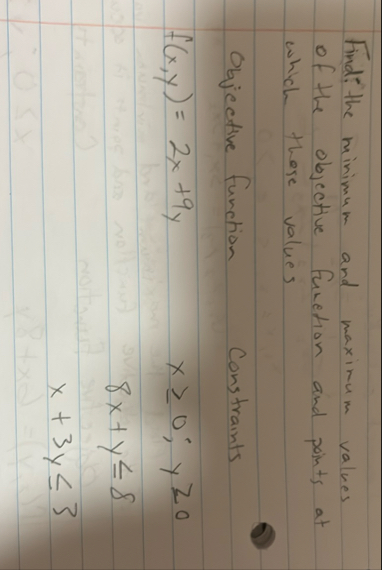 Find the minimum and maximum values
of the objective function and points at
which those values
Objective function Constraints
f(x,y) = 2x + 9y x ≥ 0; y ≥ 0
8x + y ≤ 8
x + 3y ≤ 3